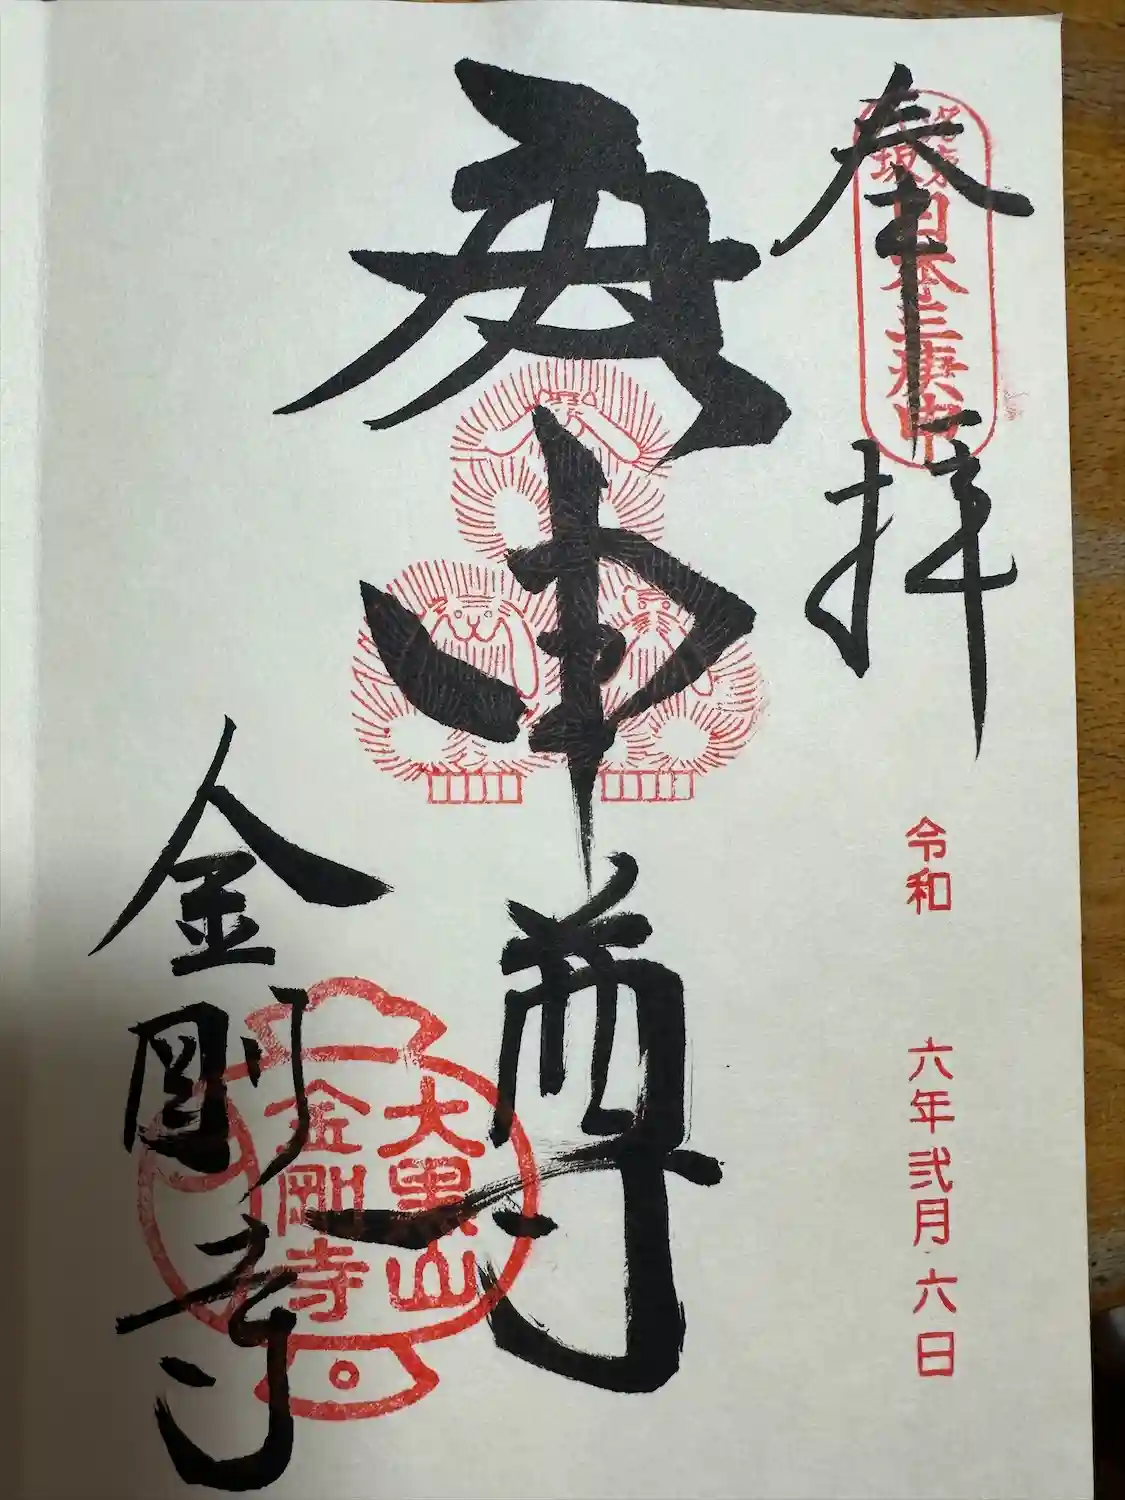 奉拝
日本三庚申
令和 六年弐月六日
庚申尊
大黒山
金剛寺
金剛寺